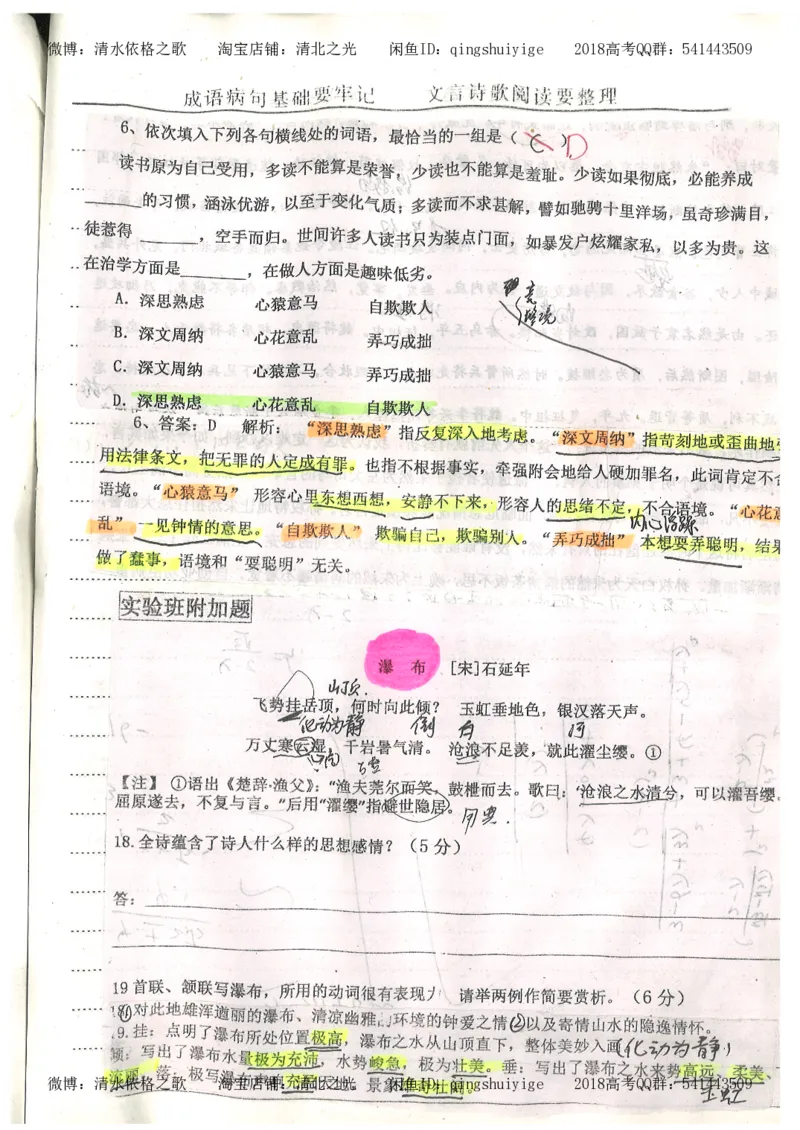 微博：清水依格之歌 淘宝店铺：清北之光 闲鱼ID：qingshuiyige 2018高考QQ群：541443509
成语病句基础要牢记 文言诗歌阅读要整理
6、依次填入下列各句横线处的词语，最恰当的一组是（C）D
读书原为自己受用，多读不能算是荣誉，少读也不能算是羞耻。少读如果彻底，必能养成
______的习惯，涵泳优游，以至于变化气质；多读而不求甚解，譬如驰骋十里洋场，虽奇珍满目，
徒惹得______，空手而归。世间许多人读书只为装点门面，如暴发户炫耀家私，以多为贵。这
在治学方面是______，在做人方面是趣味低劣。
A．深思熟虑 心猿意马 自欺欺人
B．深文周纳 心花意乱 弄巧成拙
C．深文周纳 心猿意马 弄巧成拙
D．深思熟虑 心花意乱 自欺欺人
6、答案：D 解析：“深思熟虑”指反复深入地考虑。“深文周纳”指苛刻地或歪曲地
用法律条文，把无罪的人定成有罪。也指不根据事实，牵强附会地给人硬加罪名，此词肯定不
语境。“心猿意马” 形容心里东想西想，安静不下来，形容人的思绪不定，不合语境。“心花意
乱”一见钟情的意思。“自欺欺人” 欺骗自己，欺骗别人。“弄巧成拙” 本想耍弄聪明，结果
做了蠢事，语境和“耍聪明”无关。
实验班附加题
瀑 布 [宋]石延年
山顶.
飞势挂岳顶，何时向此倾？ 玉虹垂地色，银汉落天声。
化动为静 倒 白 河
万丈寒云湿，千岩暑气清。 沧浪不足羡，就此濯尘缨。①
【注】 ①语出《楚辞·渔父》：“渔夫莞尔而笑，鼓枻而去。歌曰：‘沧浪之水清兮，可以濯吾缨。
屈原遂去，不复与言。”后用“濯缨”指避世隐居。
18.全诗蕴含了诗人什么样的思想感情？（5 分）
答：
19 首联、颔联写瀑布，所用的动词很有表现力 请举两例作简要赏析。（6 分）
18①对此地雄浑遒丽的瀑布、清凉幽雅的环境的钟爱之情②以及寄情山水的隐逸情怀。
19.挂：点明了瀑布所处位置极高，瀑布之水从山顶直下，整体美妙入画(化动为静)
倾：写出了瀑布水量极为充沛，水势峻急，极为壮美。垂：写出了瀑布之水来势高远、柔美、
玉虹
微博：清水依格之歌 淘宝店铺：清北之光 闲鱼ID：qingshuiyige 2018高考QQ群：541443509